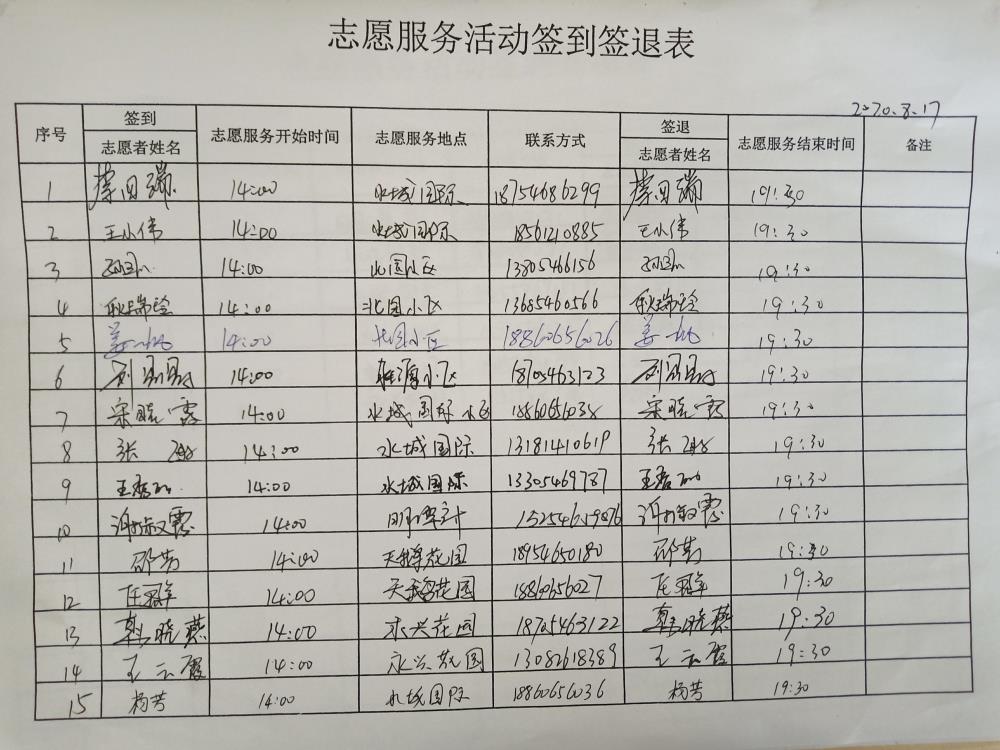 志愿服务活动签到签退表
2020.8.17
序号 签到 志愿者姓名 志愿服务开始时间 志愿服务地点 联系方式 签退 志愿者姓名 志愿服务结束时间 备注
1 14:00 水城国际 18754686299 19:30
2 王小伟 14:00 水城国际 18561210885 王小伟 19:30
3 14:00 北国小区 13805466156 19:30
4 耿瑞玲 14:00 北国小区 13685460566 耿瑞玲 19:30
5 14:00 北国小区 18860656026 19:30
6 14:00 小区 18705463123 19:30
7 宋晓霞 14:00 水城国际小区 1886065603 宋晓霞 19:30
8 张 14:00 水城国际 13181410619 张 19:30
9 14:00 水城国际 13305469787 19:30
10 14:00 15254659876 19:30
11 邵芳 14:00 花园 18954650180 邵芳 19:30
12 14:00 花园 18860656027 19:30
13 韩晓燕 14:00 永兴花园 18705463122 韩晓燕 19:30
14 王云霞 14:00 永兴花园 13082618389 王云霞 19:30
15 杨芳 14:00 水城国际 18860656036 杨芳 19:30